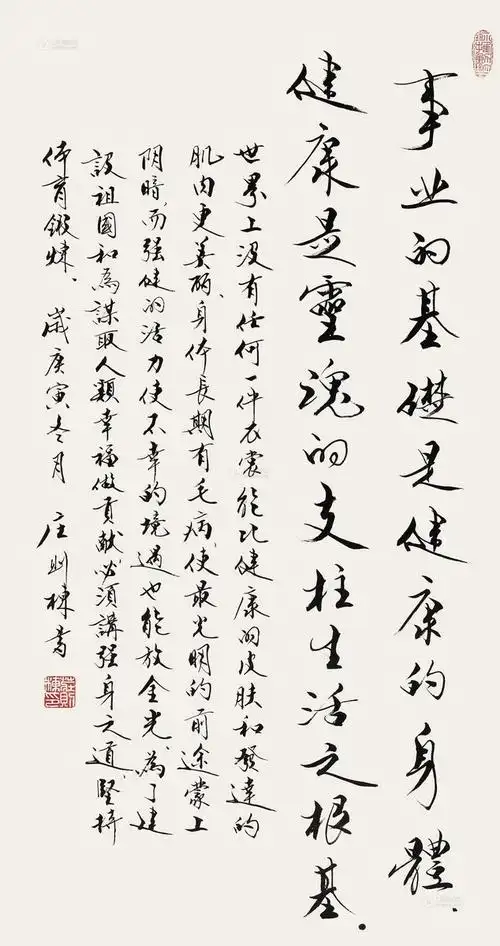 事业的基礎是健康的身體.
健康是靈魂的支柱生活之根基.
世界上没有任何一件衣裳能比健康的皮肤和發達的
肌肉更美丽、身体長期有毛病、使最光明的前途蒙上
阴暗、而强健的活力使不幸的境遇也能放金光、为了建
設祖國和為謀取人類幸福做貢献必須講强身之道、堅持
体育鍛煉、歲庚寅冬月 庄则棟書